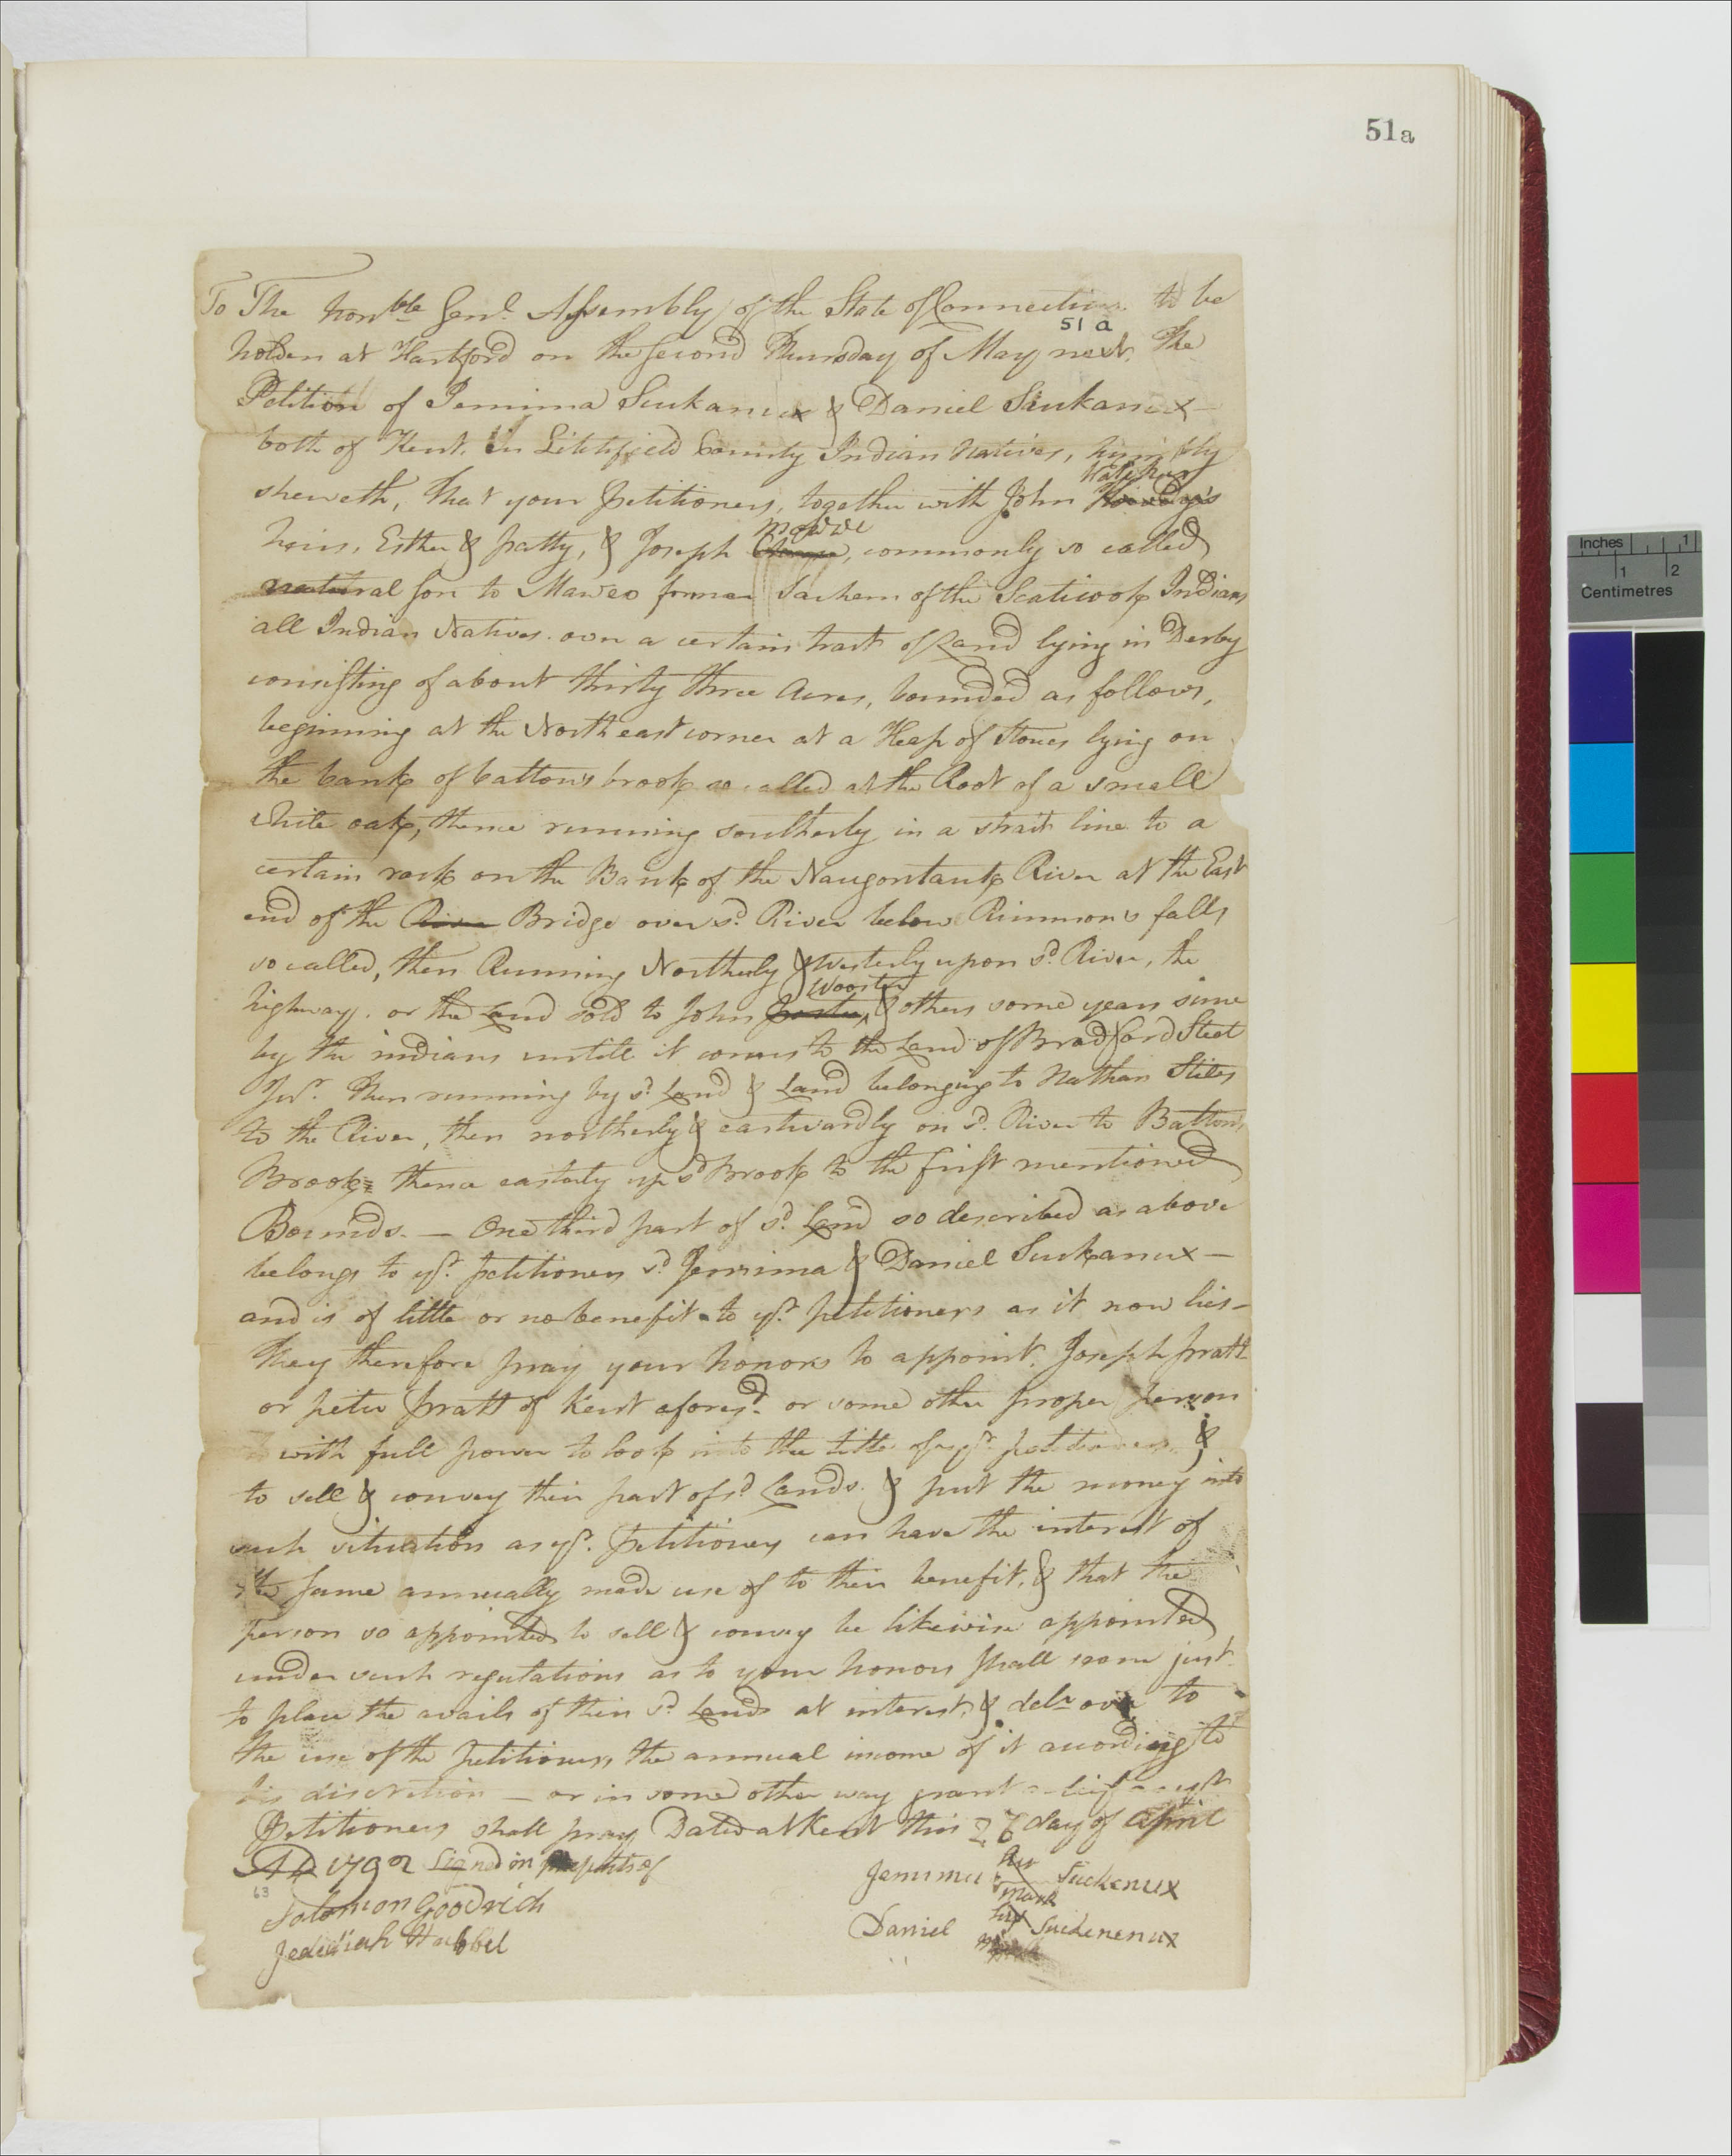 51a
To The honble Genl. Assembly of the State of Connecticut to be
51 a
holden at Hartford on the second Thursday of May next. The
Petition of Jemima Suukanux & Daniel Suukanux —
both of Kent. in Litchfield County Indian Natives, humbly
sheweth, that your petitioners, together with John
heirs, Esther & patty, & Joseph Mawwe, commonly so called
natural son to Maweo former Sachem of the Scaticook Indians
all Indian Natives. own a certain tract of Land lying in Derby
consisting of about thirty three Acres, bounded as follows,
beginning at the North east corner at a Heap of stones lying on
the bank of battons brook so called at the Root of a small
white oak, thence running southerly in a strait line to a
certain rock on the Bank of the Naugontauk River at the East
end of the River Bridge over sd. River below Rimmons falls
so called, then Running Northerly & westerly upon sd. River, the
Wooster
highway. or the Land sold to John & others some years since
by the indians untill it comes to the Land of Bradford Steel
Jur. then running by sd. Land & Land belonging to Nathan Stiles
to the River, then northerly & eastwardly on sd. River to Battons
Brook thence easterly up sd Brook to the first mentioned
Bounds. — One third part of sd. Land so described as above
belongs to yr. petitioners sd Jemima & Daniel Suukanux —
and is of little or no benefit to yr. petitioners as it now lies —
they therefore pray your honors to appoint. Joseph pratt
or peter pratt of Kent aforesd. or some other proper person
with full power to look into the title of yr. petitioners. &
to sell & convey their part of sd Lands. & put the money into
such situation as yr. petitioners can have the interest of
the same annually made use of to their benefit, & that the
person so appointed to sell & convey be likewise appointed
under such regulations as to your honors shall seem just
to place the avails of their sd Lands at interest, & delr over to
the use of the petitioners, the annual income of it according to
his discretion — or in some other way grant relief as yr
Petitioners shall pray Dated at Kent this 26 day of April
AD 1792 Signed in presents of
63
Solomon Goodrich
Jedediah Hubbel
Jemima her mark Suckenux
Daniel his mark Suckenenux
Inches 1
1 2
Centimetres